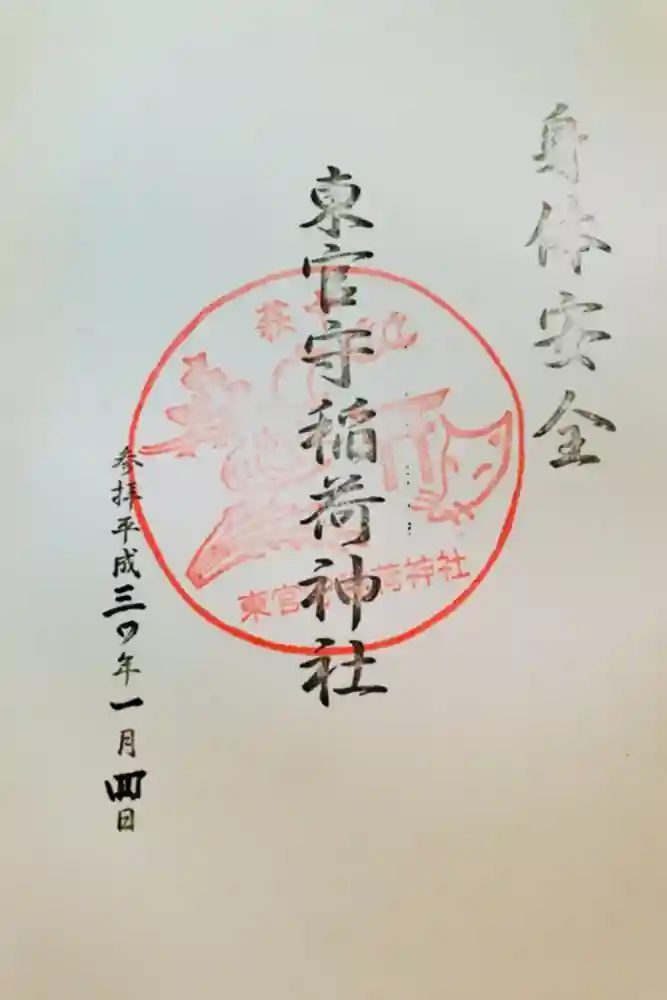 身体安全
東官守稲荷神社
参拝平成三〇年一月四日
東官守稲荷神社